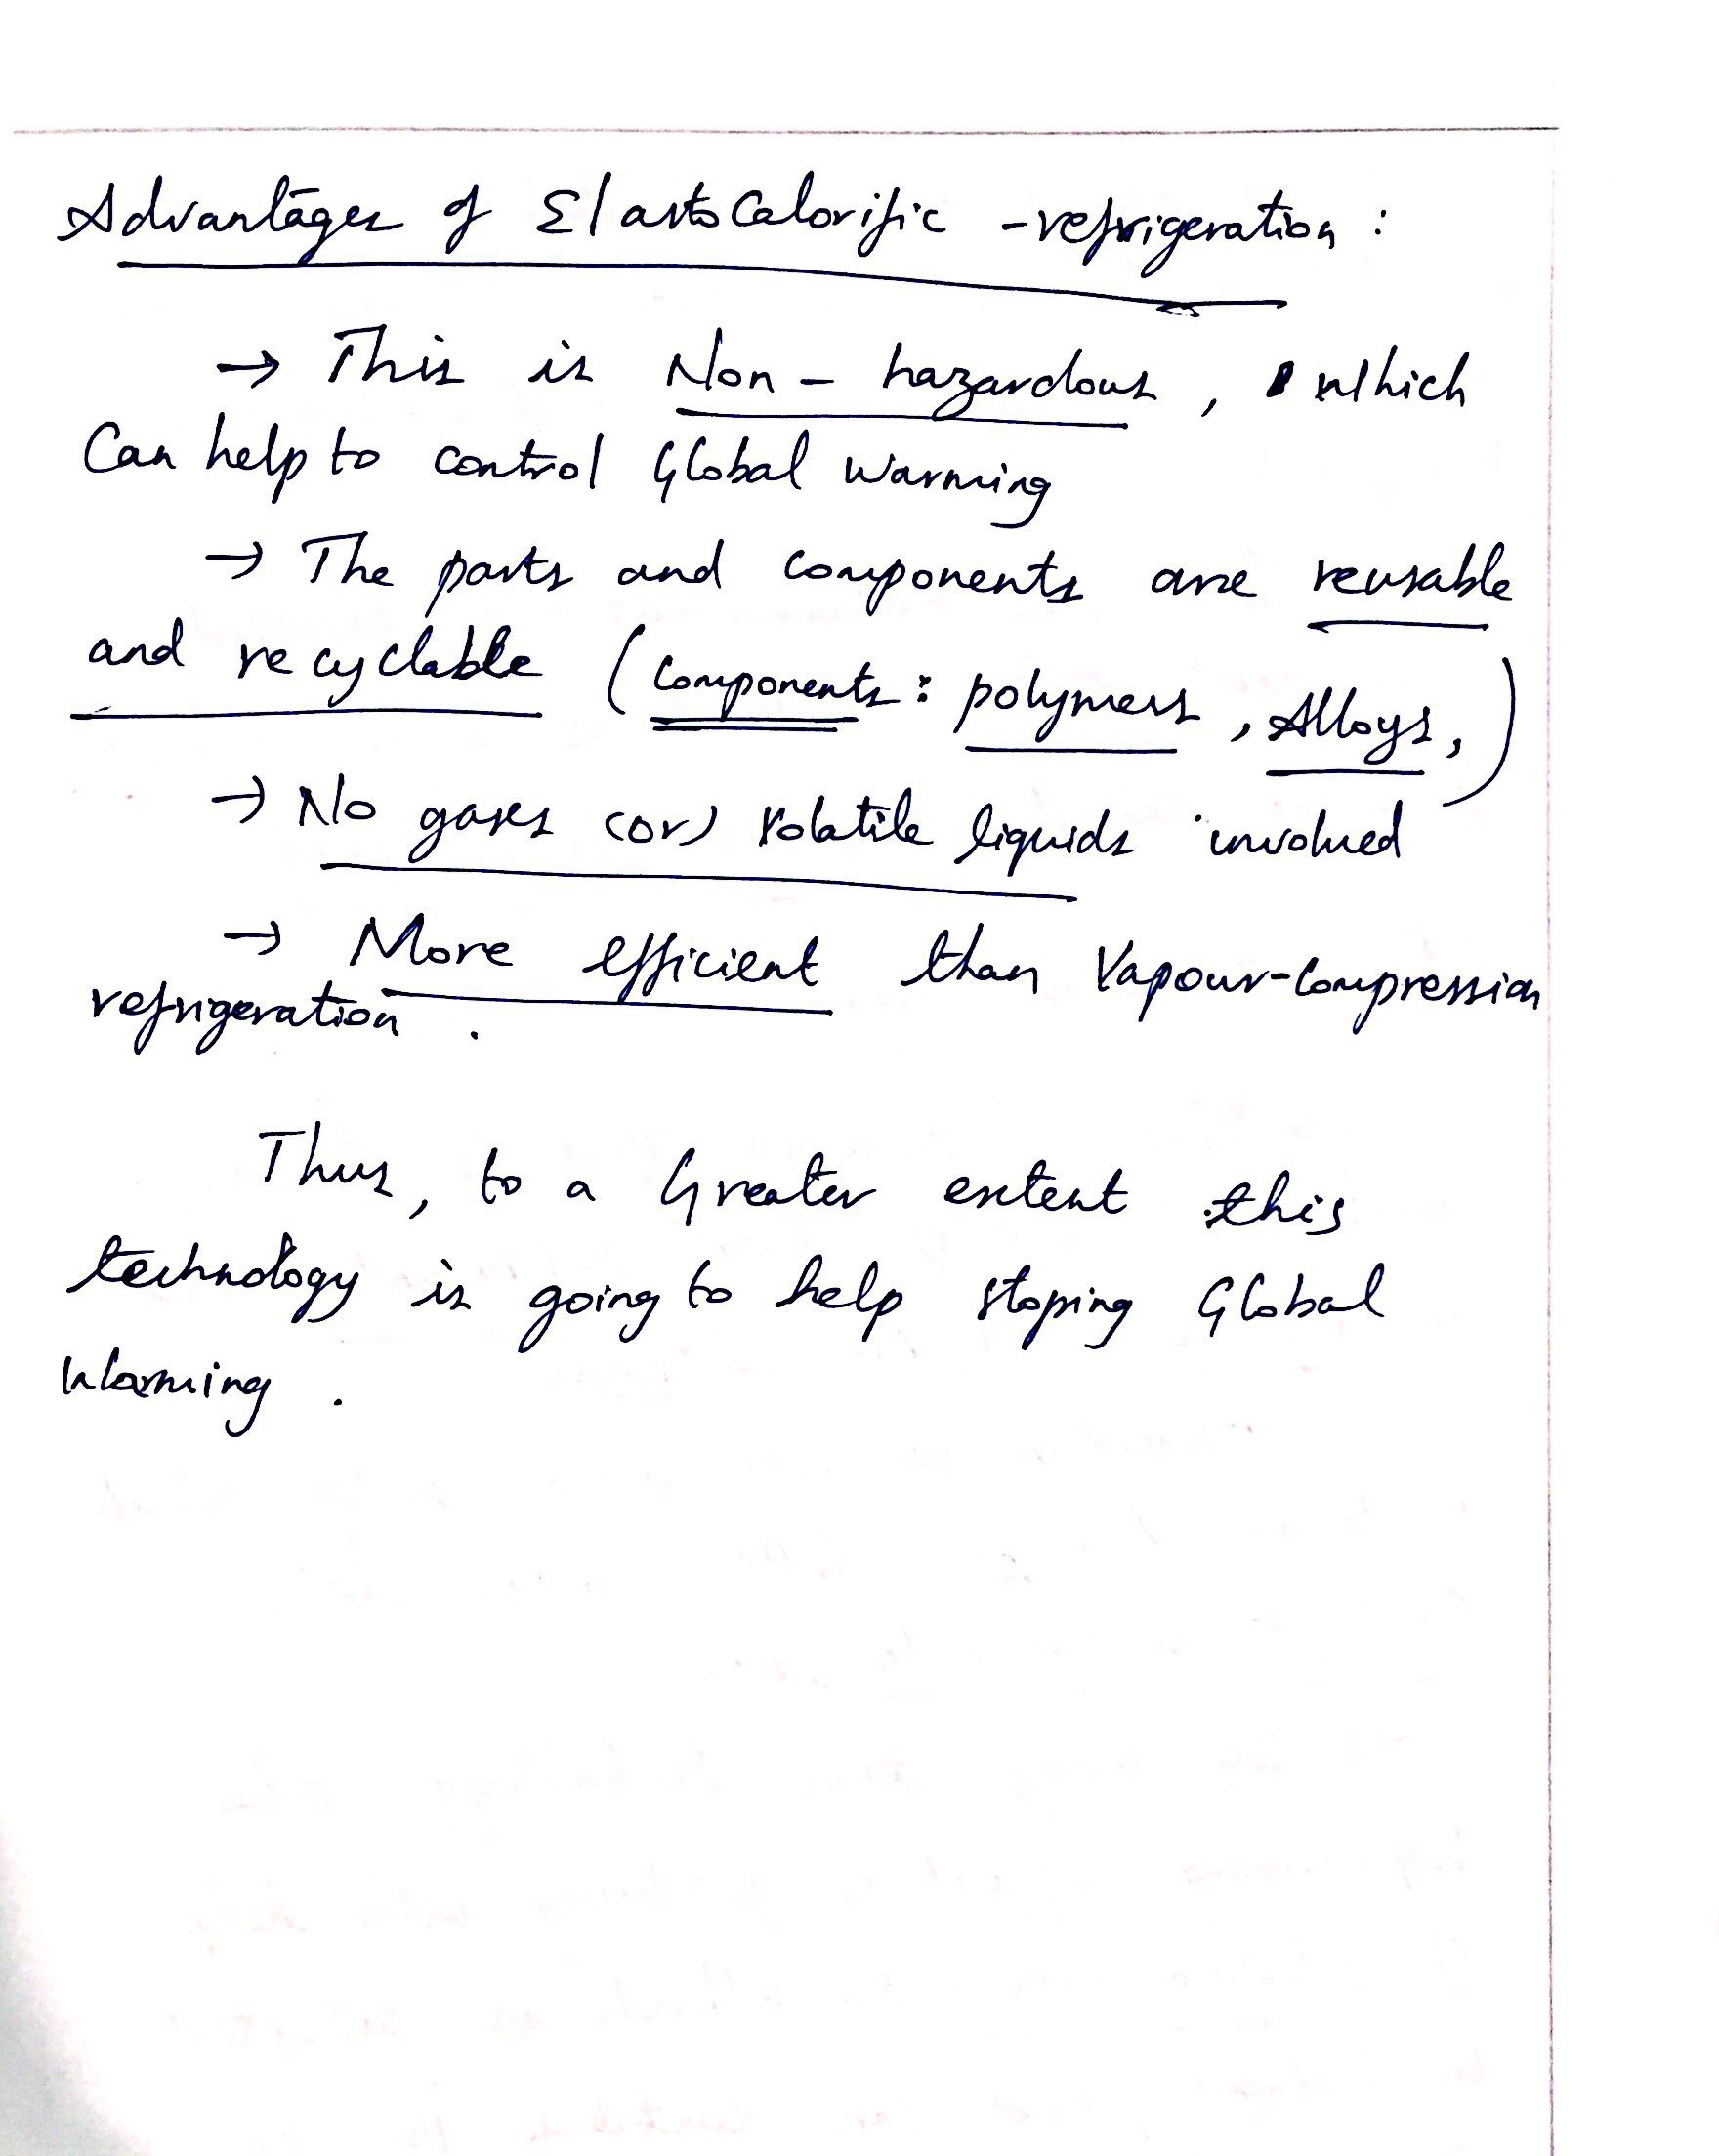 Advantages of ElastoCalorific -refrigeration :
→ This is Non - hazardous , which
Can help to control Global warming
→ The parts and components are reusable
and recyclable (Components : polymers , Alloys, )
→ No gases (or) Volatile liquids involved
→ More efficient than Vapour-Compression
refrigeration .
Thus, to a Greater extent this
technology is going to help stoping Global
Warming .